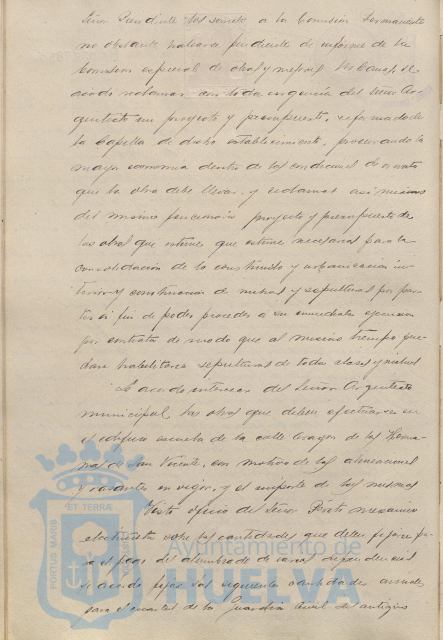 Señor Presidente los somete a la Comisión Permanente
no obstante hallarse pendiente de informe de la
Comision especial de obras y mejoras
acordó reclamar con toda urgencia del señor Ar-
quitecto un proyecto y presupuesto, reformado de
la Capilla de dicho establecimiento, procurando la
mayor economia dentro de las condiciones de ornato
que la obra debe llevar, y reclamar asi mismo
del mismo funcionario proyecto y presupuesto de
las obras que estime que estime necesarias para la
consolidación de lo construido y urbanización in-
terior y construccion de nichos y sepulturas por par-
tes a fin de poder proceder a su inmediata ejecucion
por contrata de modo que al mismo tiempo que-
dara habilitadas sepulturas de todas clases y nichos
Se acordo interesar del Señor Arquitecto
municipal, las obras que deben efectuarse en
el edificio escuela de la calle Aragon de las Herma-
nas de San Vicente, con motivo de las alineaciones
y rasantes en vigor, y el importe de las mismas
Visto oficio del Señor Perito mecanico
electricista sobre las cantidades que deben fijarse pa-
ra el pago del alumbrado de varias dependencias
se acordó fijar las siguientes cantidades anuales
para el cuartel de la Guardia Civil de antiguo
PORTUS MARIS
ET TERRÆ
CUSTODIA
Ayuntamiento de
HUELVA